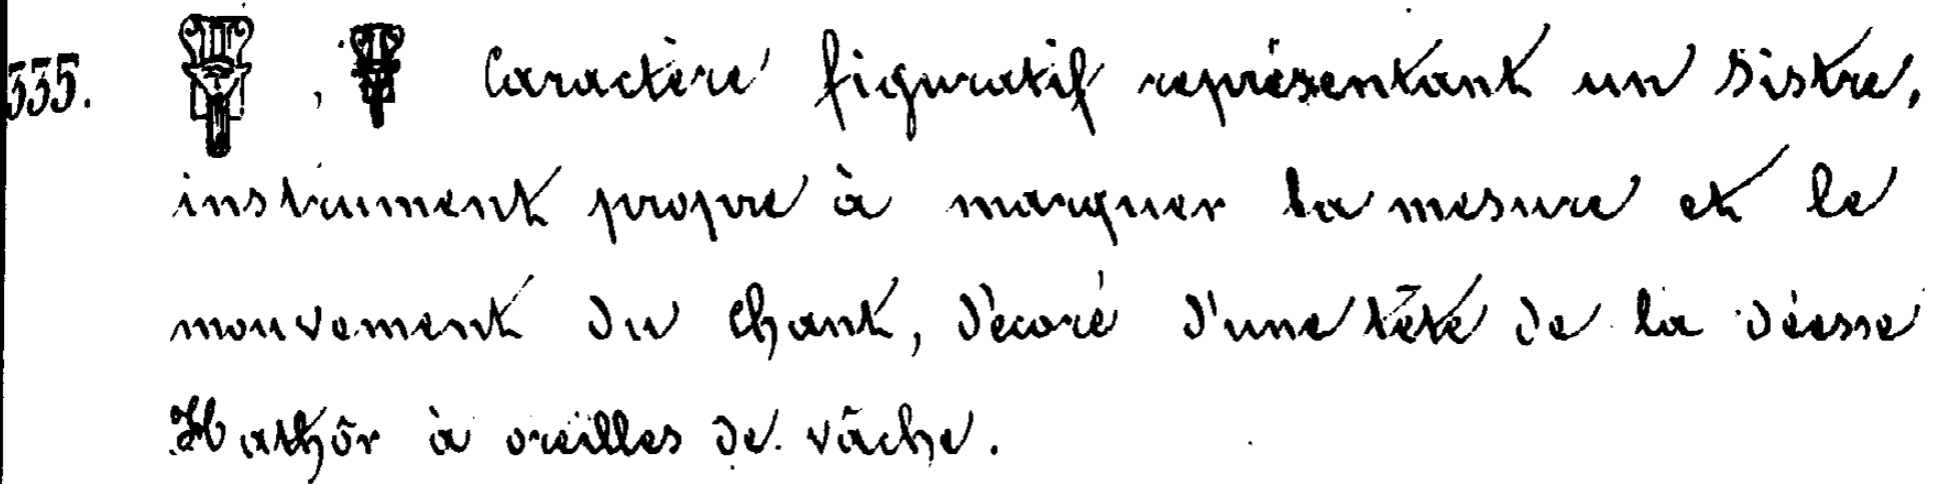 335. 𓏣 , 𓏣 Caractère figuratif représentant un Sistre,
instrument propre à marquer la mesure et le
mouvement du Chant, décoré d'une tête de la déesse
Hathôr à oreilles de vâche.